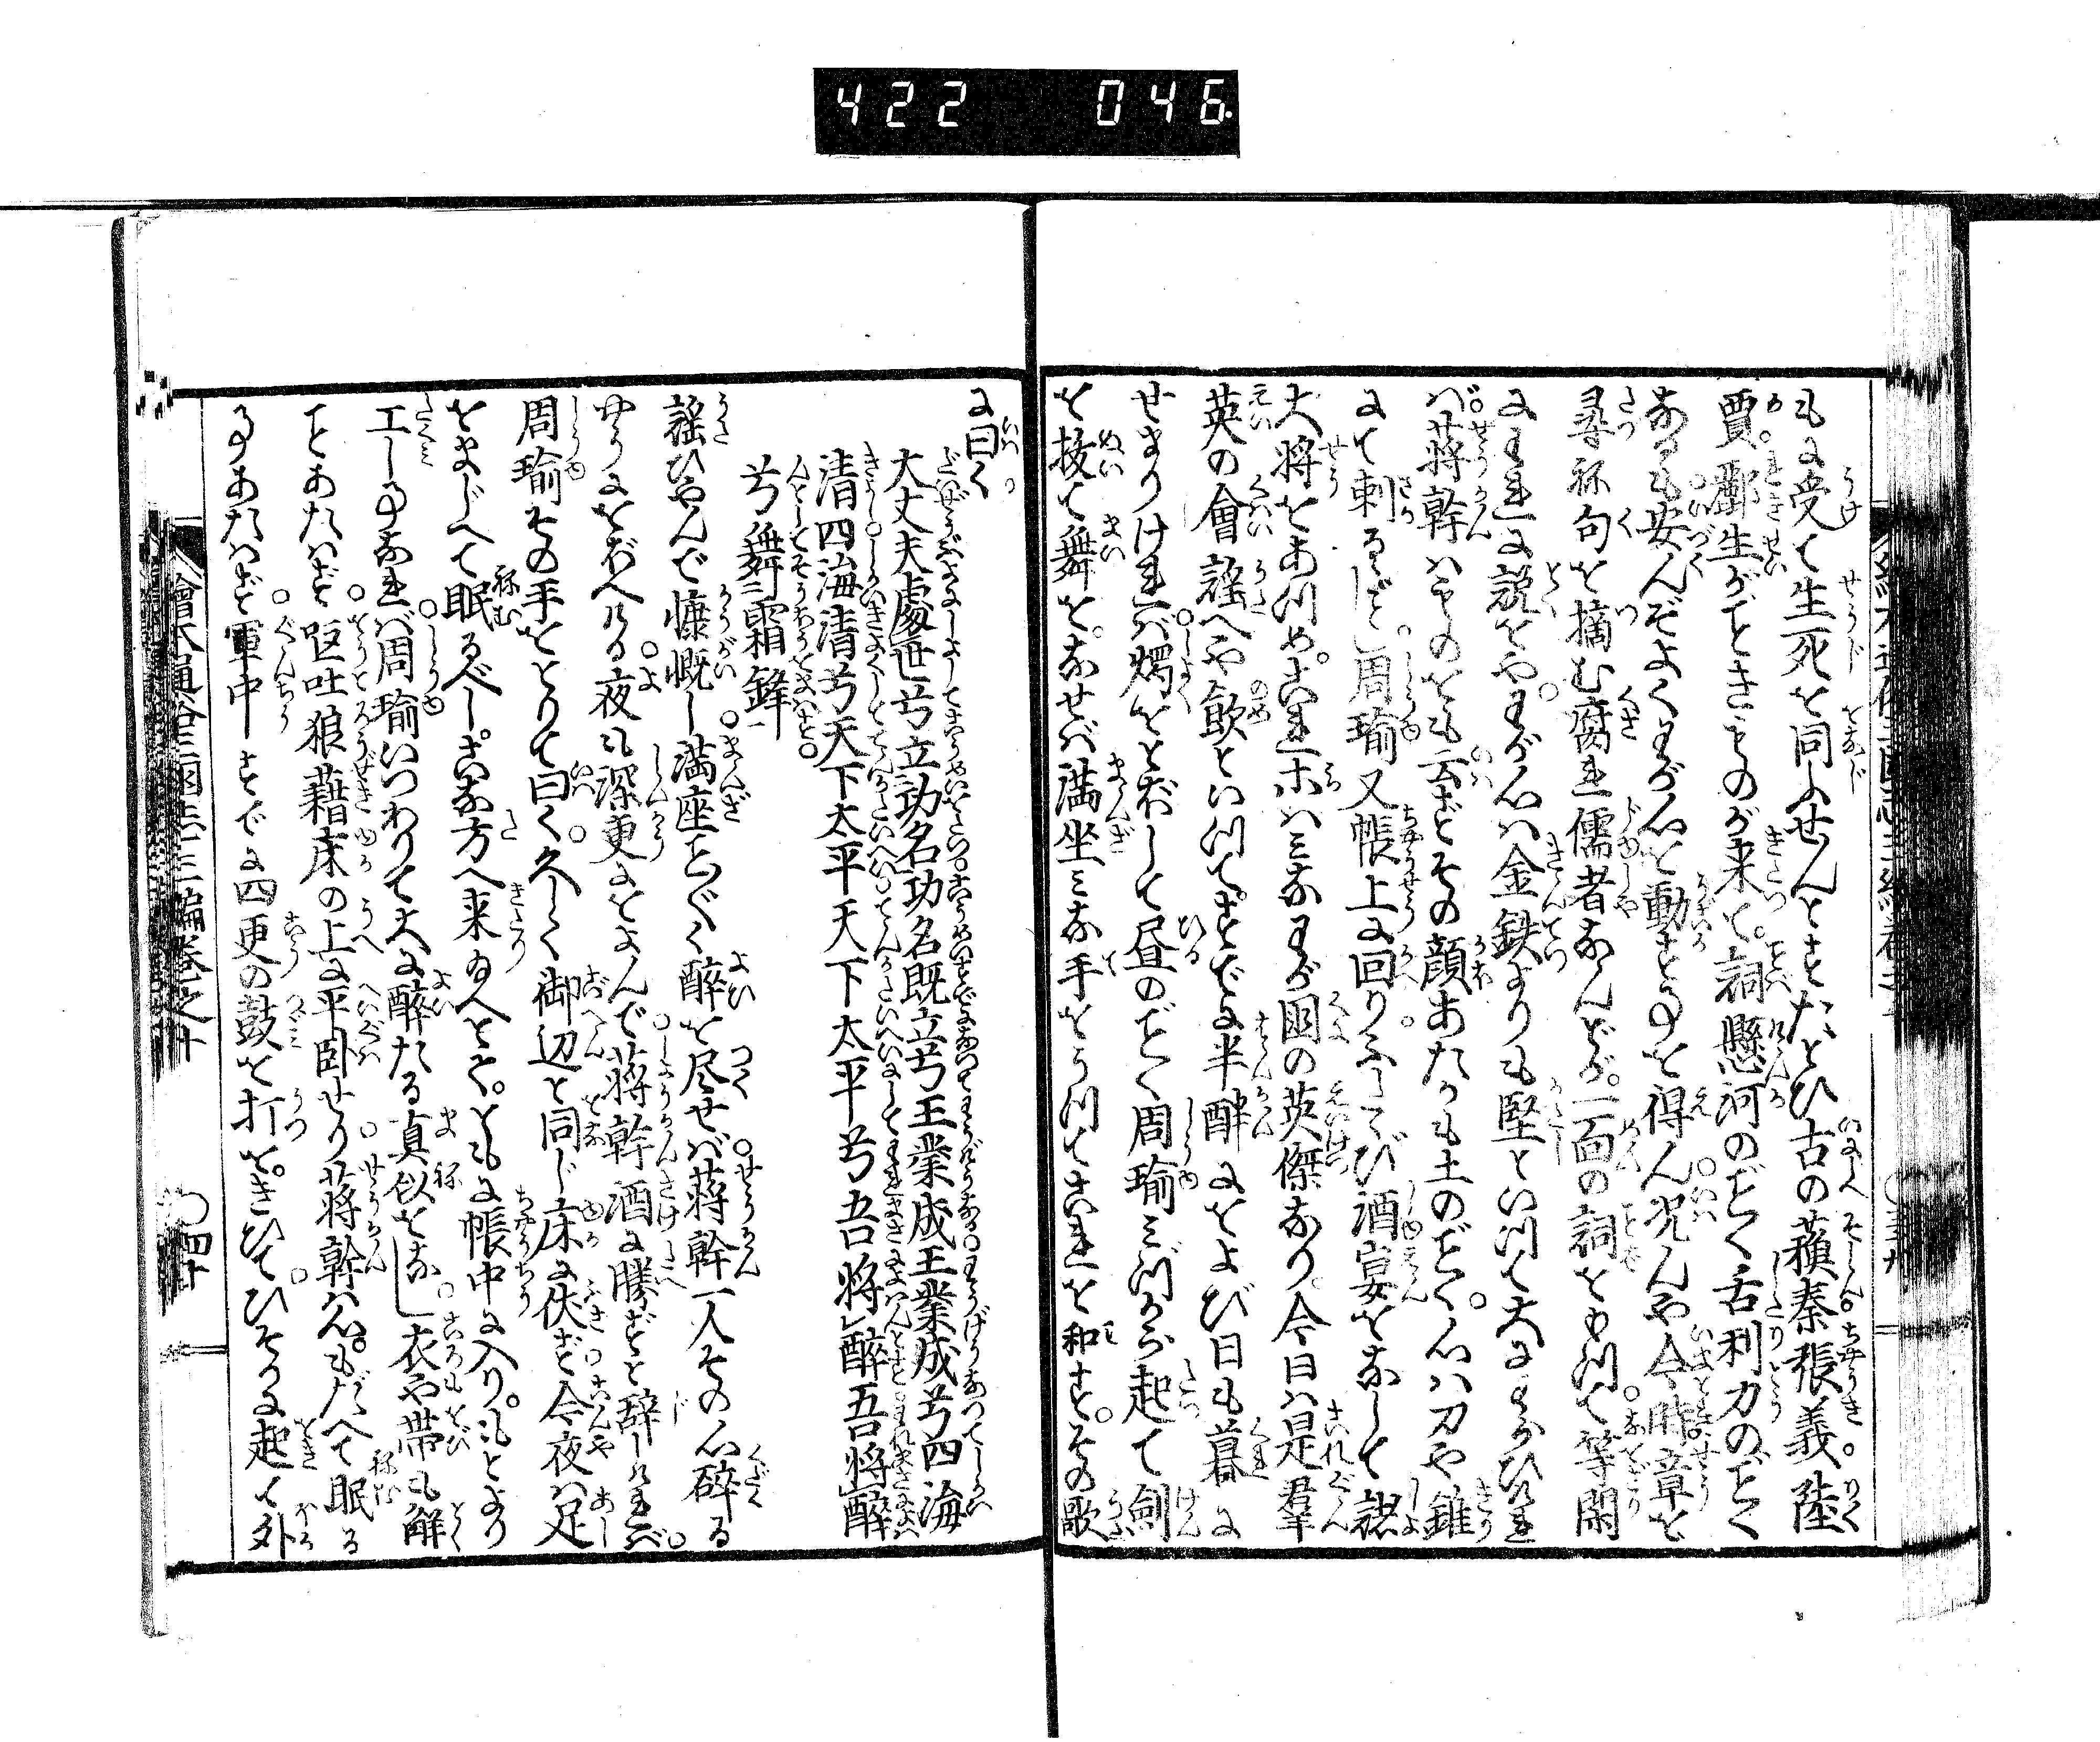 422 046
もに受て生死を同ふせんとすたとひ古の蘓秦張義陸
賈酈生がごときものが来て詞懸河のごとく舌利刀のごとく
あるも安んぞよくわが心を動すことを得ん況んや今時章を
尋ね句を摘む腐れ儒者なんどが一面の詞をもつて等閑
にわれに説をやわが心は金鉄よりも堅といつて大にわらひければ
蒋幹はものをも云ずその顔あたかも土のごとく心は刀や錐
にて刺るごとし周瑜又帳上に回りふたゝび酒宴をなして諸
大将をあつめこれホはミなわが国の英傑なり今日は是羣
英の會謡へや飲といつてすでに半酣におよび日も暮に
せまりけれバ燭をとぼして昼のごとく周瑜ミづから起て剣
を抜て舞をなせば満坐ミな手をうつてこれを和すその歌
に曰く
大丈夫處世兮立功名功名既立兮王業成王業成兮四海
清四海清兮天下太平天下太平兮吾将醉吾将醉
兮舞霜鋒
謡ひやんで慷慨し満座ことごとく醉を尽せば蒋幹一人その心碎る
やうにおぼへける夜も深更におよんで蒋幹酒に勝ずと辞しければ
周瑜その手をとりて曰く久しく御辺と同じ床に伏ず今夜は足
をまじへて眠るべしこなた方へ来給へとてともに帳中に入りもとより
工しことなれば周瑜いつわりて大に醉たる真似をなし衣や帯も解
ことあたはず嘔吐狼藉床の上に平卧せり蒋幹は心もだへて眠る
ことあたはず軍中すでに四更の鼓を打をきひてひそかに起て外
繪本通俗三国志三編巻之十 四十